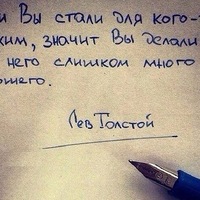 и Вы стали для кого-
хим, значит Вы делали
него слишком много
ошего.
Лев Толстой